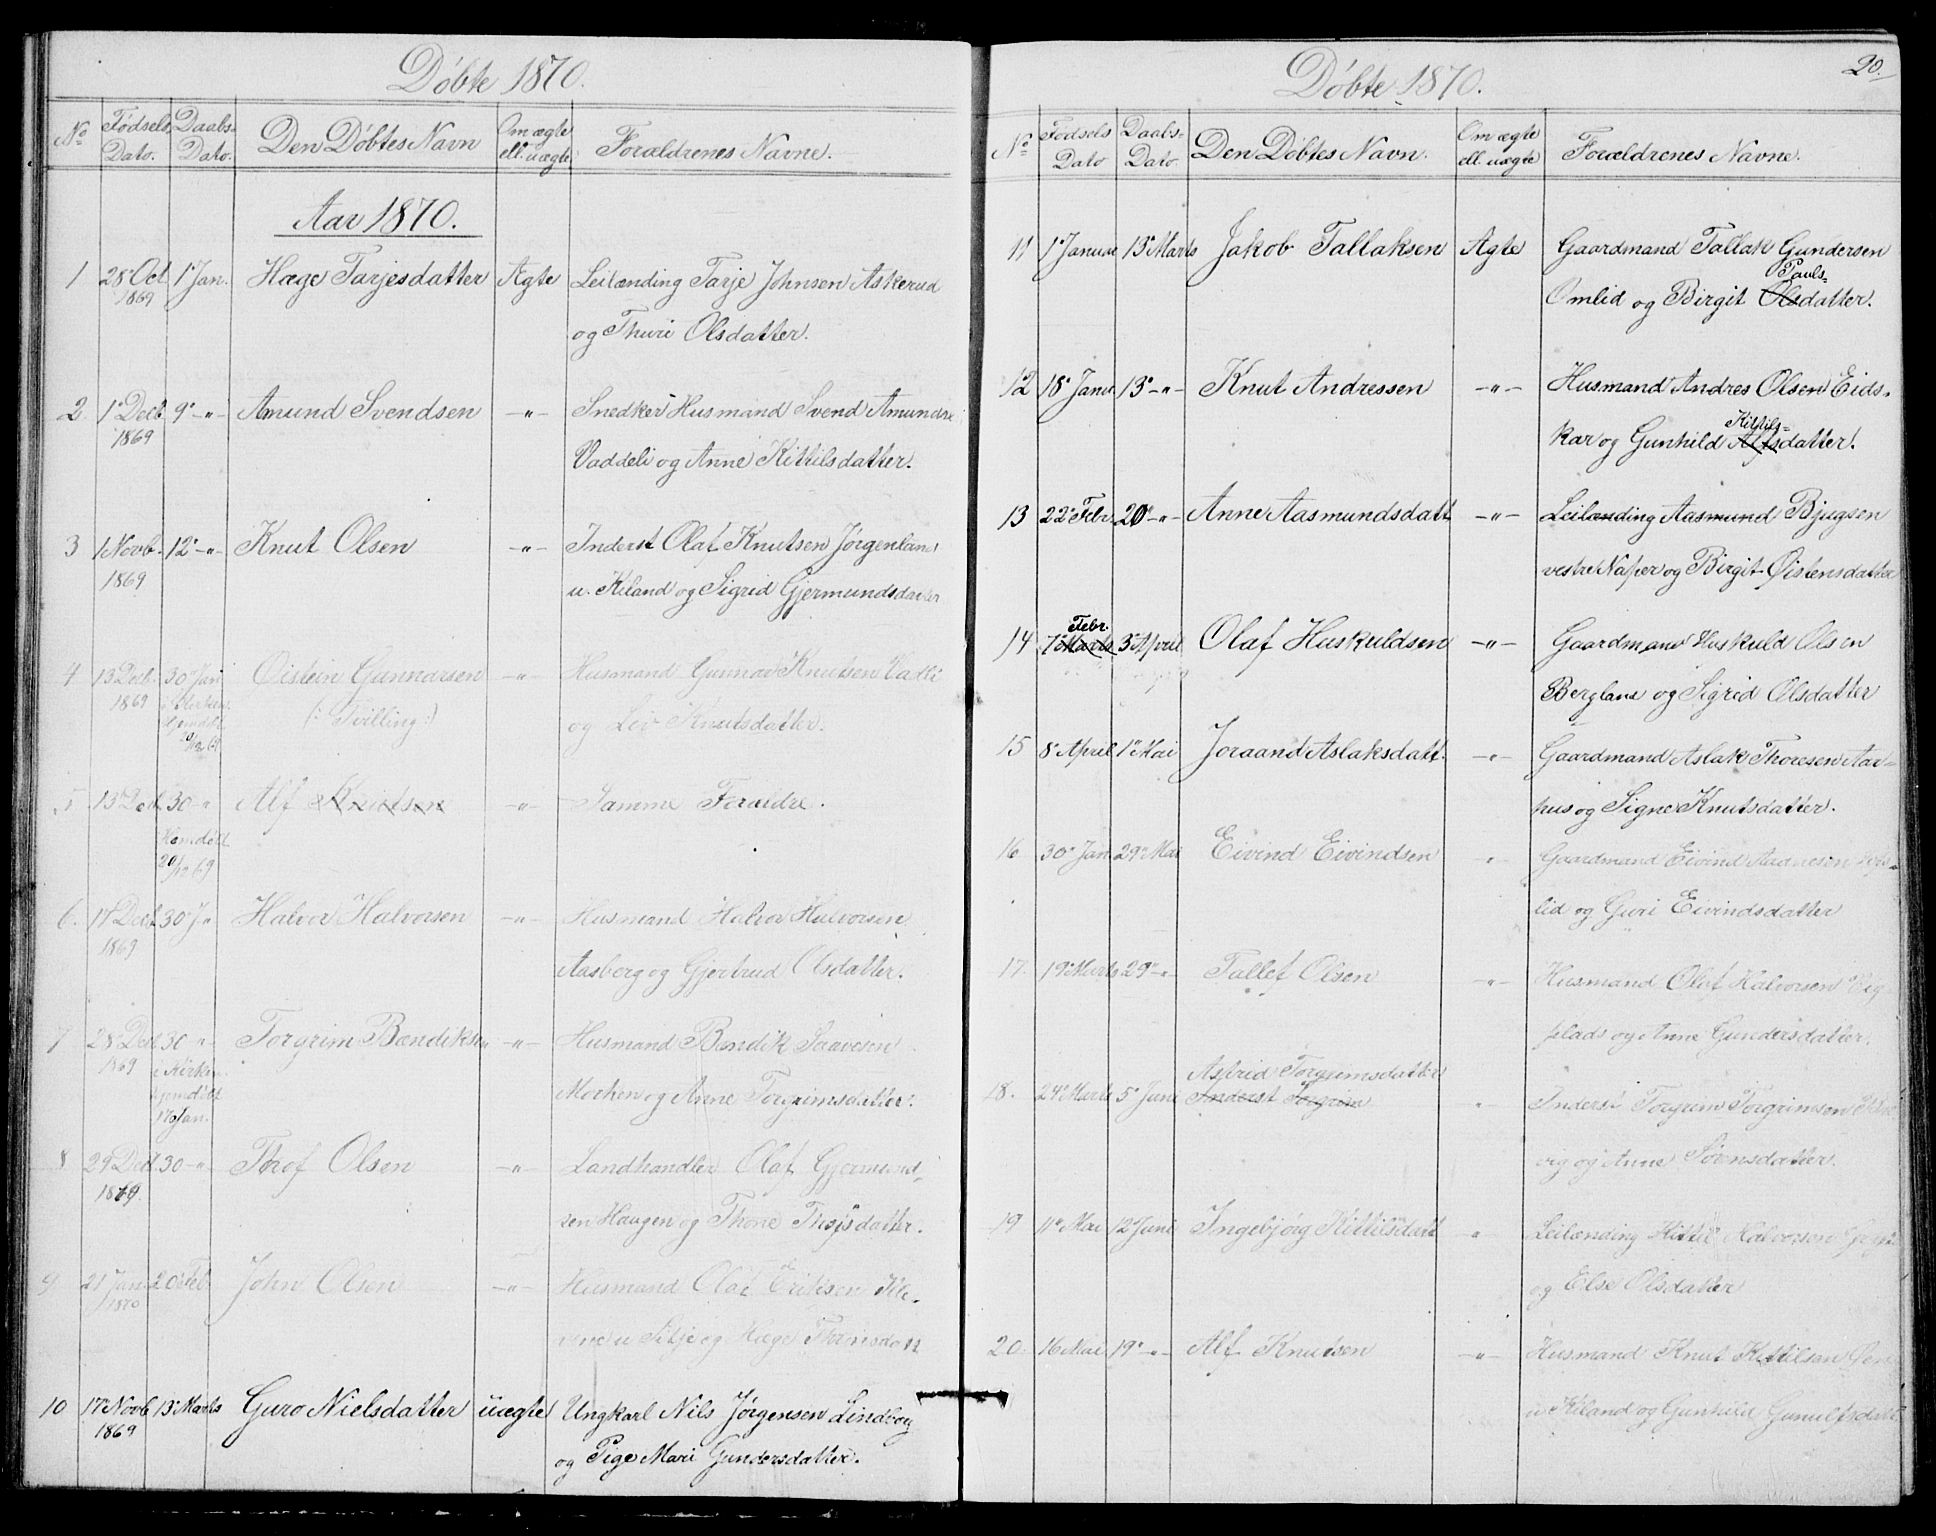 Døbte 1870.
No Fødsels Dato. Daabs- Dato. Den Døbtes Navn Om ægte ell. uægte Forældrenes Navne.
Aar 1870.
1 28 Oct 1' Jan. Hæge Tarjesdatter Ægte Leilænding Tarje Johnsen Askerud
1869 og Thuri Olsdatter.
2. 1' Decb 9' -"- Amund Svendsen -"- Snedker Husmand Svend Amunds
1869 Vaddeli og Anne Kittilsdatter.
3 1 Novb. 12' -"- Knut Olsen -"- Inderst Olaf Knutsen Jørgenland
1869 u. Kiland og Sigrid Gjermundsdatter
4 13 Decb. 30 Jan Øistein Gunnarsen -"- Husmand Gunnar Knutsen
1869 i Kirken (: Tvilling :) og Liv Knutsdatter.
hjemdøbt
20/12 69
5 13' Decb 30 -"- Alf Knutsen -"- Samme Forældre.
Hjemdøbt
20/12 69
6. 17 Decb 30 J" Halvor Halvorsen -"- Husmand Halvor Halvorsen
1869 Aasberg og Gjertrud Olsdatter.
7 28' Decb 30 -"- Torgrim Bendiksen -"- Husmand Bendik Saavesen
1869 i Kirken Morken og Anne Torgrimsdatter.
hjemdøbt
17 Jan.
8 29 Decb 30 -"- Thof Olsen -"- Landhandler Olaf Gjermund-
1869. sen Haugen og Thone Thofsdatter.
9 21 Jan. 20 Feb. John Olsen -"- Husmand Olaf Eriksen
1870 og Hæge
10 17' Novb 13' Marts Guro Nielsdatter üægte Ungkarl Nils Jørgensen Lindborg
1869 og Pige Mari Gundersdatter.
Døbte 1870.
20.
No Fødsels Dato Daabs- Dato. Den Døbtes Navn. Om ægte ell. uægte Forældrenes Navne.
11 1' Januar 13' Marts Jakob Tallaksen Ægte Gaardmand Tallak Gundersen
Pauls-
Omlid og Birgit Olsdatter.
12 18' Janr 13' -"- Knut Andressen -"- Husmand Andres Olsen Eids-
Kittils-
kar og Gunhild Alfsdatter.
13 22' Febr. 20' -"- Anne Aasmundsdatt -"- Leilænding Aasmund Bjugsen
vestre Naper og Birgit Øistensdatter
Febr.
14 7' Marts 3' April Olaf Huskuldsen -"- Gaardmand Huskuld Olsen
Bergland og Sigrid Olsdatter
15 8' April 1' Mai Joraand Aslaksdatt. -"- Gaardmand Aslak Thoresen Aar-
hus og Signe Knutsdatter.
16 30' Jan 29' Mai Eivind Eivindsen " Gaardmand Eivind Aadnesen
lid og Guri Eivindsdatter
17. 19' Marts 29' -"- Tallef Olsen -"- Husmand Olaf Halvorsen
plads og Anne Gundersdatter.
Astrid Torgrimsdatter
18. 24' Marts 5' Juni Inderst Torgrim " Inderst Torgrim Torgrimsen
vig og Anne Sørensdatter.
19 11' Mai 12 Juni Ingebjørg Kittilsdatt " Leilænding Kittil Halvorsen
og Else Olsdatter
20. 16 Mai 19' -"- Alf Knutsen -"- Husmand Knut Kittilsen
u. Kiland og Gunhild Gunulfsdatt